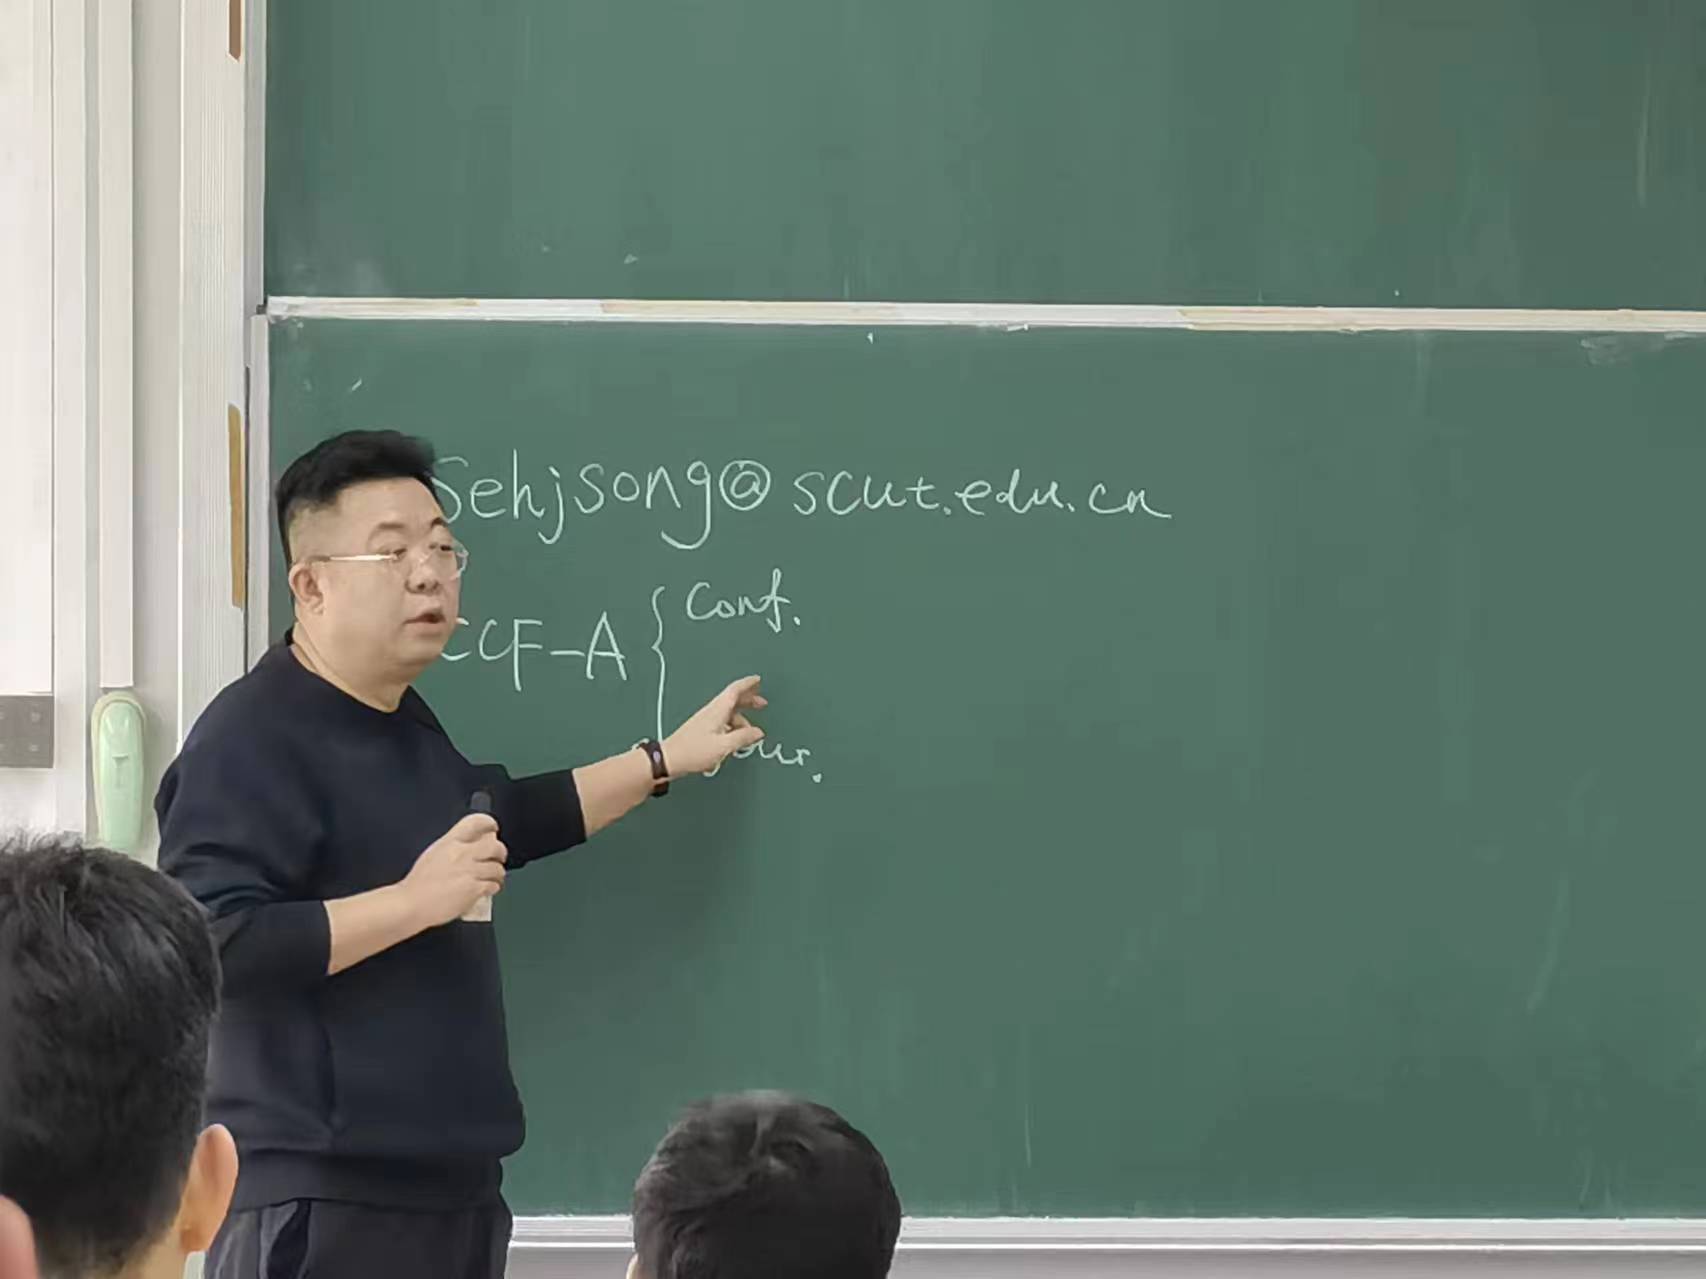 Sehjsong@scut.edu.cn
CCF-A { Conf.
Jour.